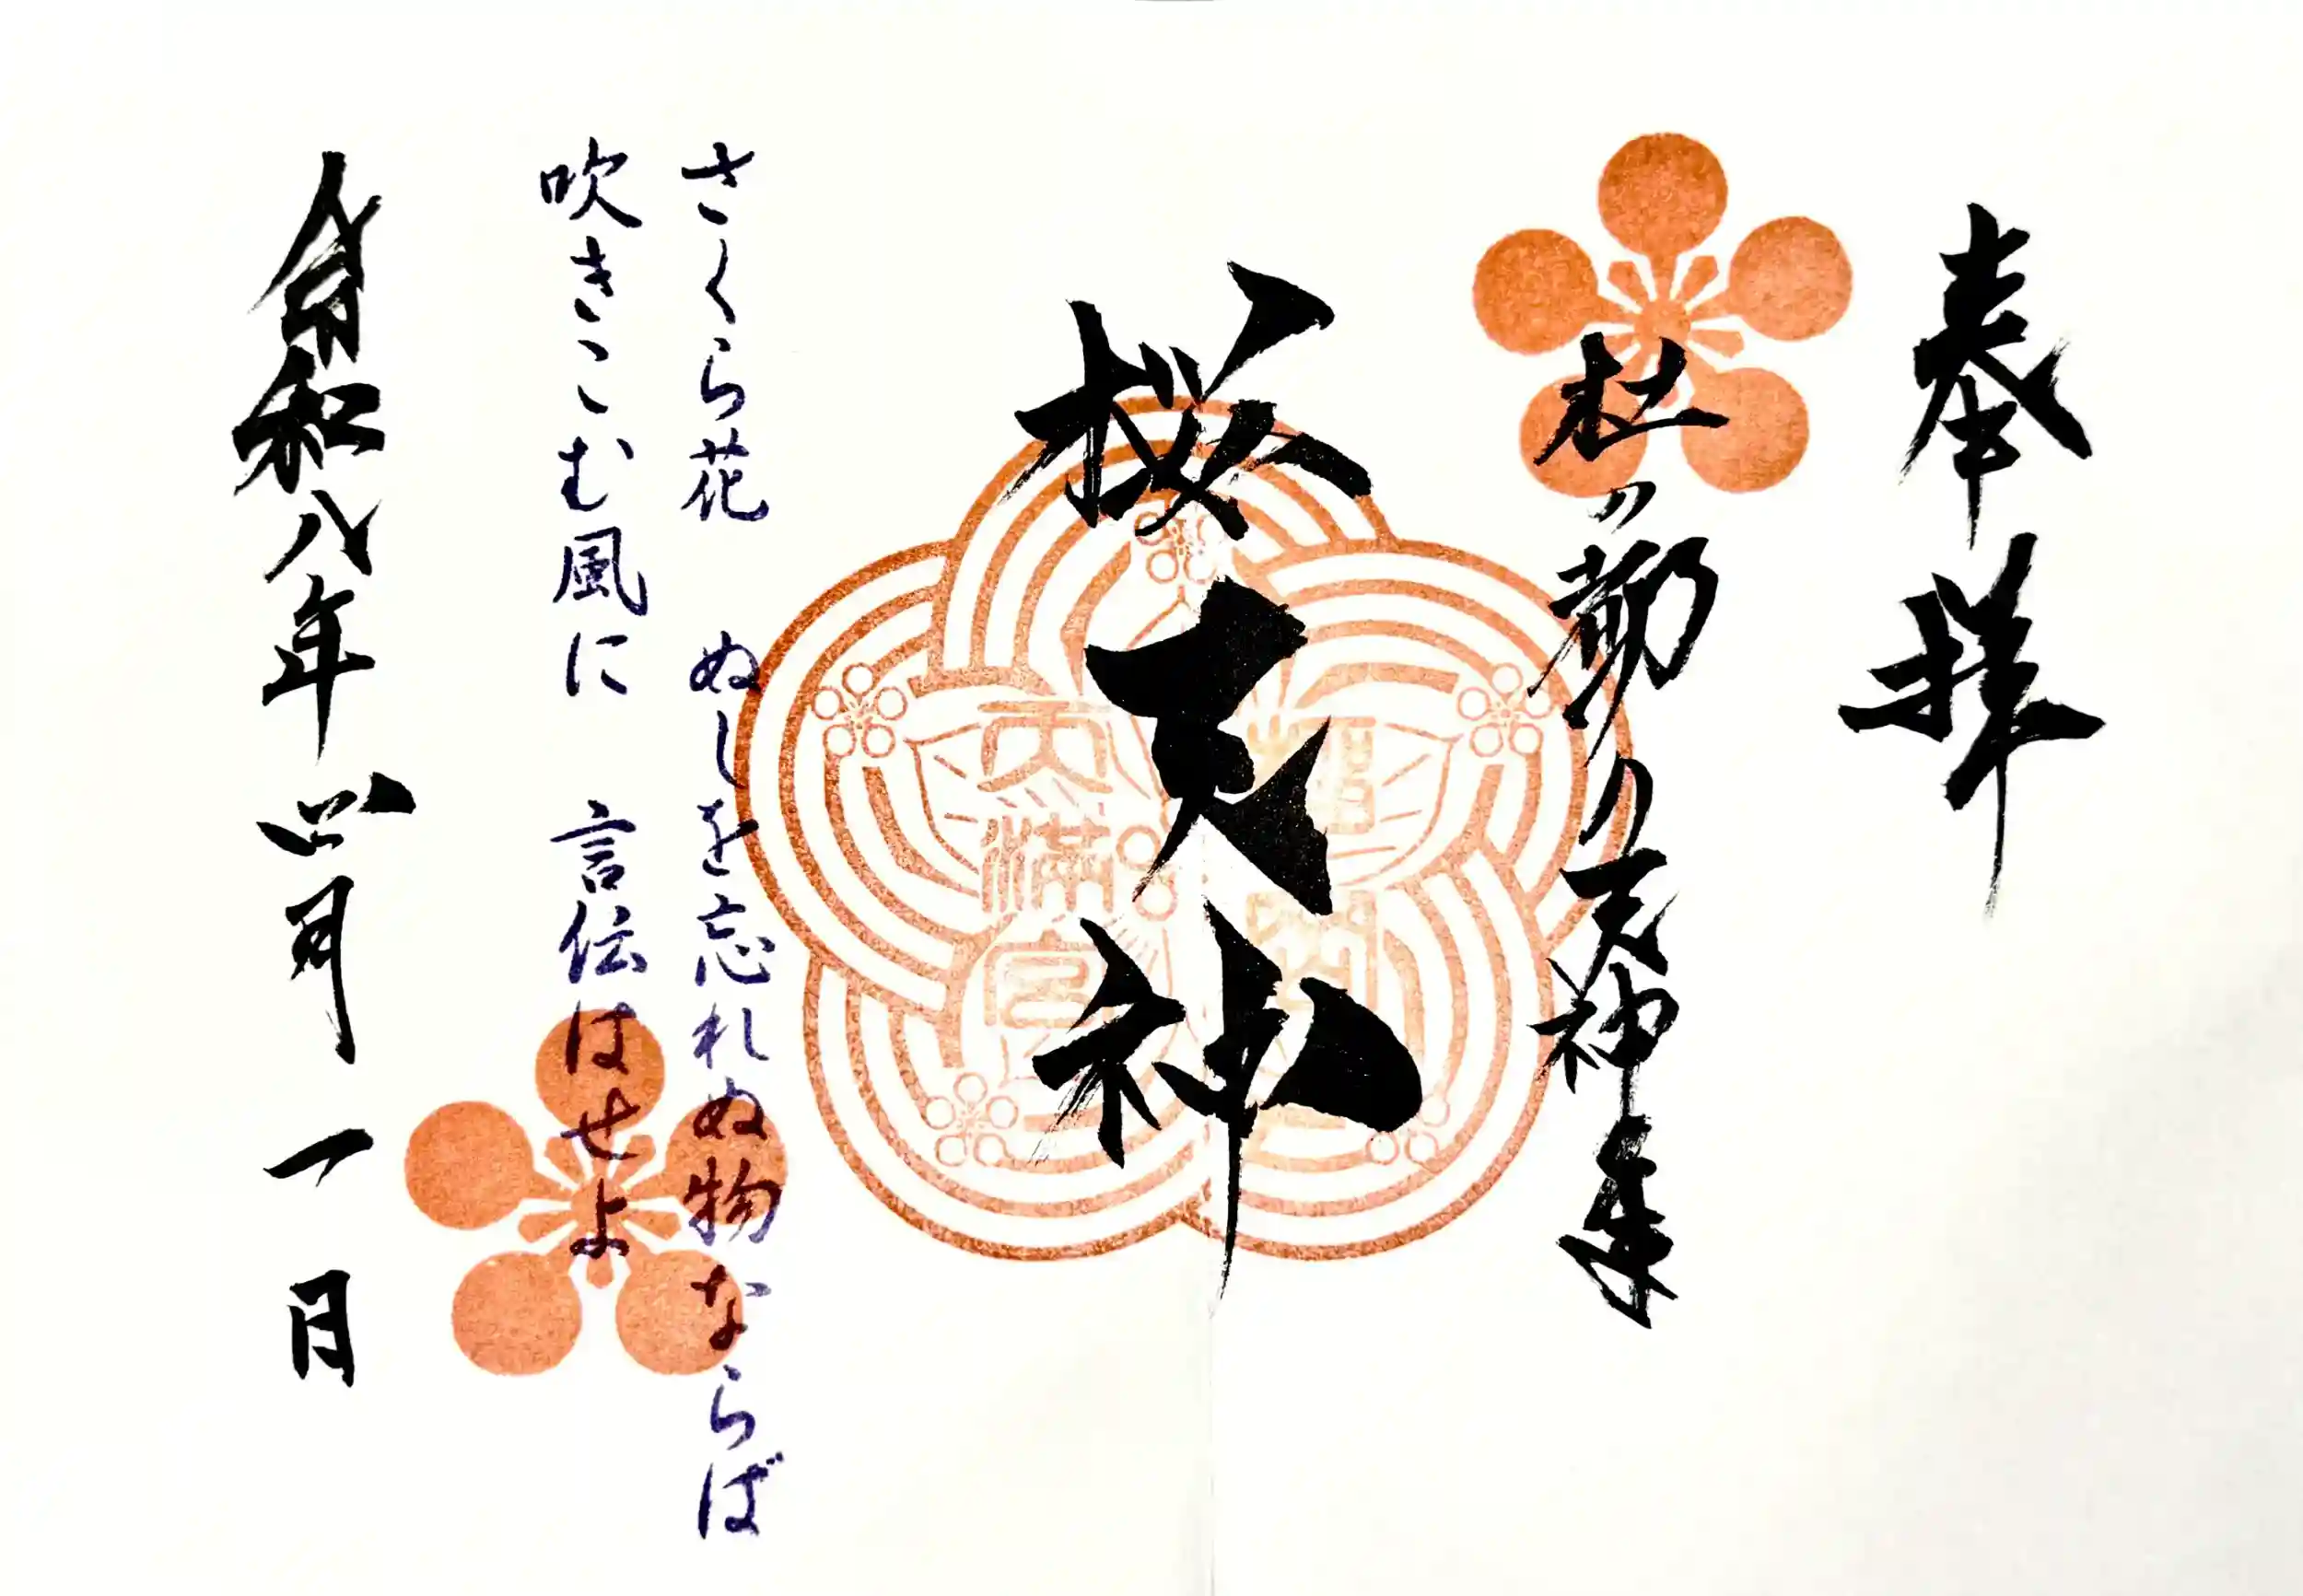 奉拝
杜の都の天神さま
桜天神
榴岡
天満宮
さくら花 ぬしを忘れぬ物ならば
吹きこむ風に 言伝はせよ
令和八年四月一日